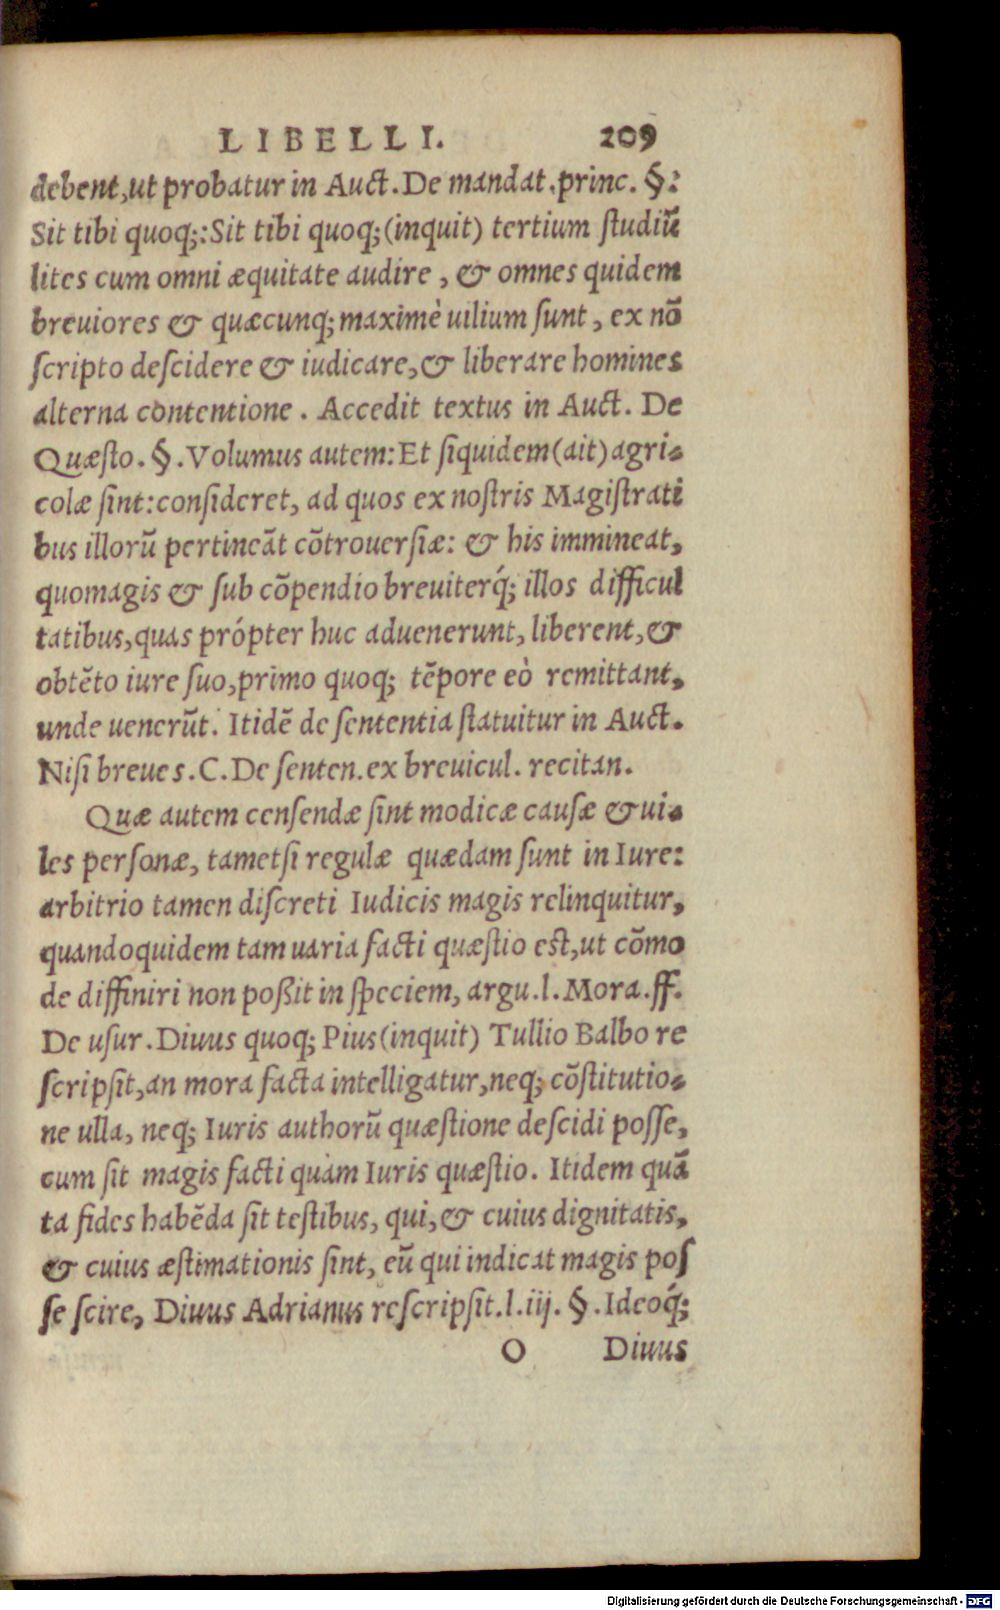 LIBELLI. 209
debent,ut probatur in Auct.De mandat.princ. §:
Sit tibi quoq;:Sit tibi quoq;(inquit) tertium ſtudiũ
lites cum omni æquitate audire , & omnes quidem
breuiores & quæcunq; maximè uilium ſunt , ex nõ
ſcripto deſcidere & iudicare,& liberare homines
alterna contentione . Accedit textus in Auct. De
Quæſto.§.Volumus autem:Et ſiquidem(ait)agri-
colæ ſint:conſideret, ad quos ex noſtris Magiſtrati
bus illorũ pertineãt cõtrouerſiæ: & his immineat,
quomagis & ſub cõpendio breuiterq́; illos difficul
tatibus,quas própter huc aduenerunt, liberent,&
obtẽto iure ſuo,primo quoq; tẽpore eò remittant,
unde uenerũt. Itidẽ de ſententia ſtatuitur in Auct.
Niſi breues.C.De ſenten.ex breuicul. recitan.
Quæ autem cenſendæ ſint modicæ cauſæ & ui-
les perſonæ, tametſi regulæ quædam ſunt in Iure:
arbitrio tamen diſcreti Iudicis magis relinquitur,
quandoquidem tam uaria facti quæſtio eſt,ut cõmo
de diffiniri non poßit in ſpeciem, argu.l.Mora.ff.
De uſur.Diuus quoq; Pius(inquit) Tullio Balbo re
ſcripſit,an mora facta intelligatur,neq; cõſtitutio-
ne ulla, neq; Iuris authorũ quæſtione deſcidi poſſe,
cum ſit magis facti quàm Iuris quæſtio. Itidem quã
ta fides habẽda ſit teſtibus, qui,& cuius dignitatis,
& cuius æſtimationis ſint, eũ qui indicat magis poſ
ſe ſcire, Diuus Adrianus reſcripſit.l.iij. §.Ideoq́;
O Diuus
Digitalisierung gefördert durch die Deutsche Forschungsgemeinschaft - DFG